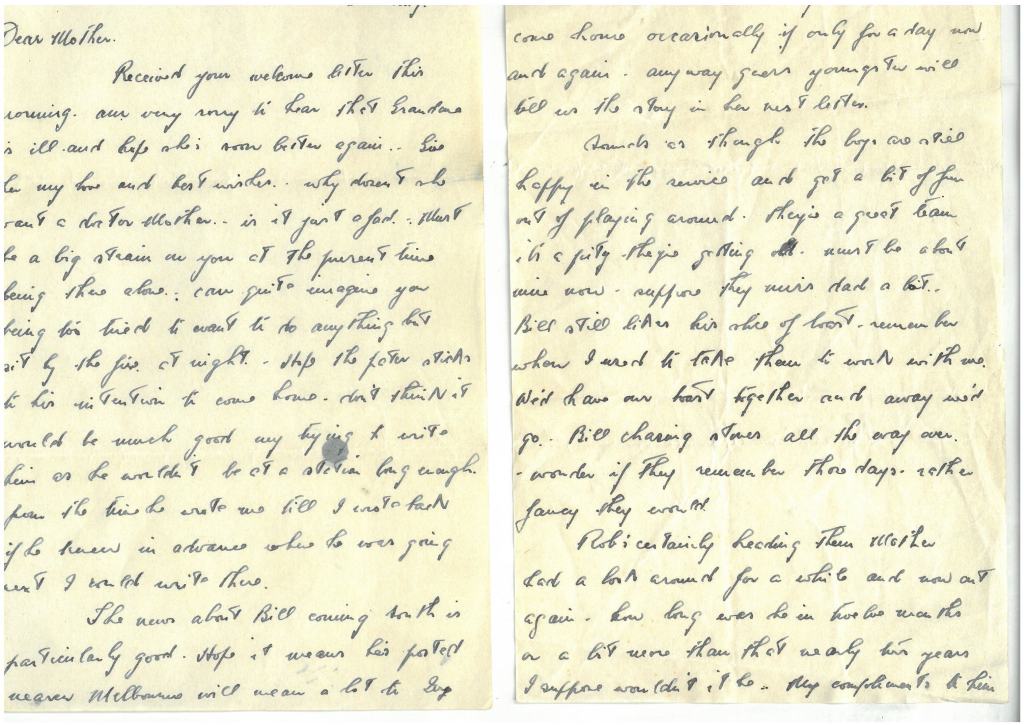 Dear Mother.
Received your welcome letter this
morning. am very sorry to hear that Grandma
is ill and hope she's soon better again.. Give
her my love and best wishes.. why doesn't she
want a doctor Mother.. is it just a fad.. Must
be a big strain on you at the present time
being there alone.. can quite imagine you
being too tired to want to do anything but
sit by the fire at night. - Hope the pater sticks
to his intention to come home. don't think it
would be much good my trying to write
him as he wouldn't be at a station long enough
from the time he wrote me till I wrote back
if he knew in advance where he was going
next I could write there.
The news about Bill coming south is
particularly good. Hope it means he's posted
nearer Melbourne will mean a lot to
come home occasionally if only for a day now
and again. anyway guess youngster will
tell us the story in her next letter.
Sounds as though the boys are still
happy in the service and get a bit of fun
out of playing around. they're a great team
it's a pity they're getting old. must be about
nine now. suppose they miss dad a lot..
Bill still likes his slice of toast. remember
when I used to take them to work with me.
We'd have our toast together and away we'd
go.. Bill chasing stones all the way over.
- wonder if they remember those days. rather
fancy they would.
Rob's certainly heading them Mother
had a look around for a while and now out
again. how long was he in twelve months
or a bit more than that nearly two years
I suppose wouldn't it be.. My compliments to him